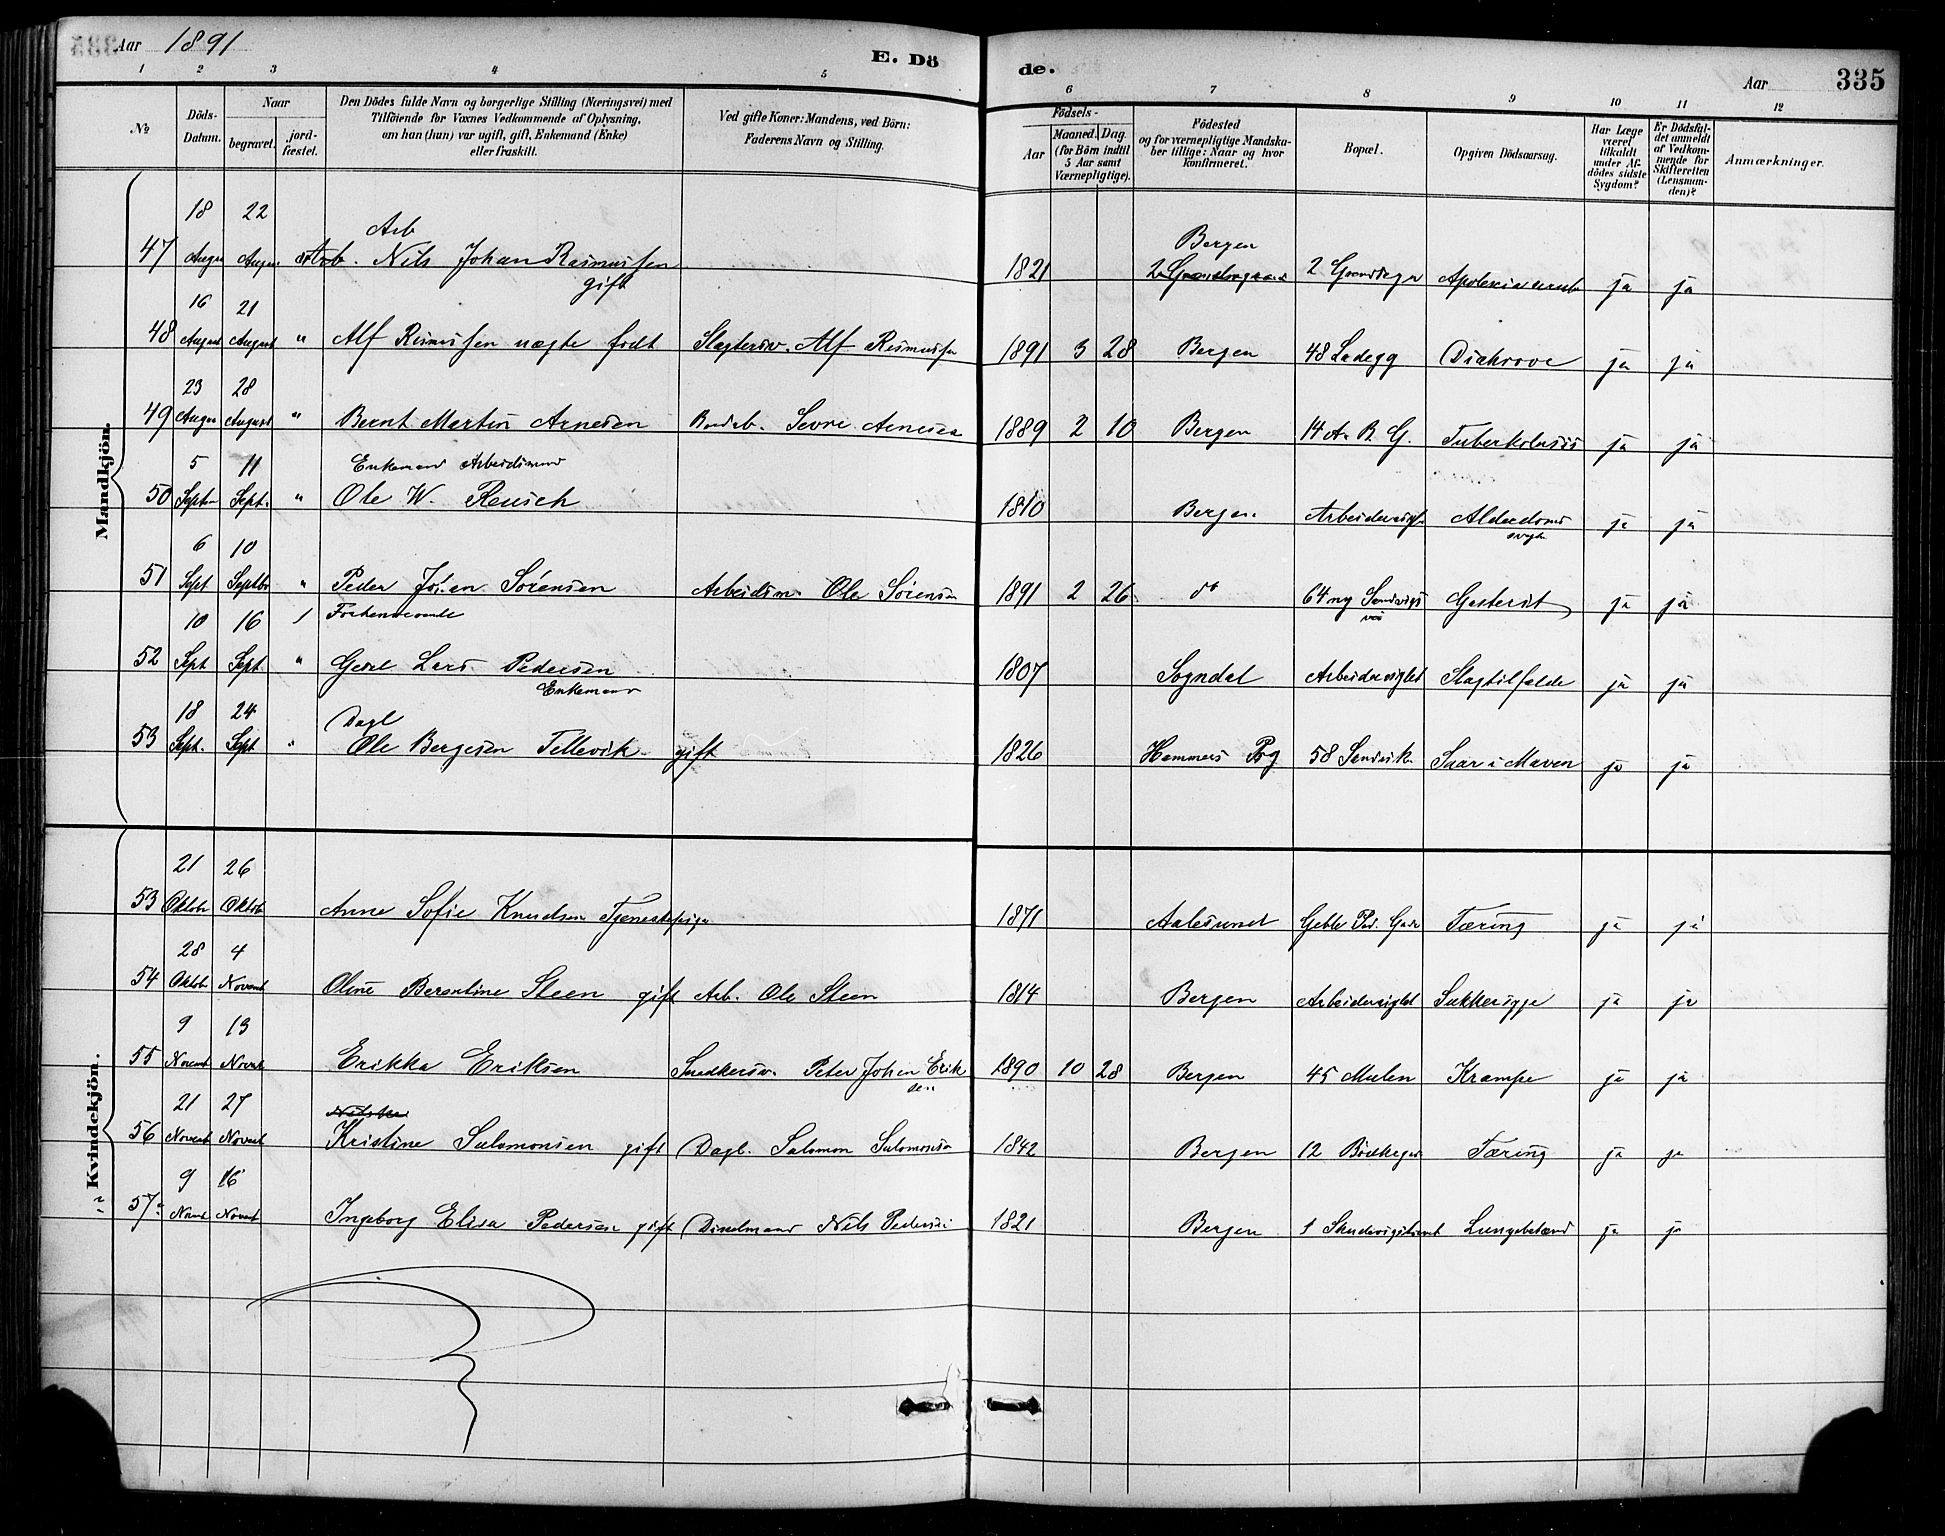 Aar 1891 E. Dö
1 2 3 4 5
№ Döds-Datum. Naar begravet. jordfæstet. Den Dödes fulde Navn og borgerlige Stilling (Næringsvei) med Tilföiende for Voxnes Vedkommende af Oplysning, om han (hun) var ugift, gift, Enkemand (Enke) eller fraskilt. Ved gifte Koner: Mandens, ved Börn: Faderens Navn og Stilling.
de. Aar 335
6 7 8 9 10 11 12
Födsels- Aar Maaned. Dag. (for Börn indtil 5 Aar samt Værnepligtige). Födested og for værnepligtige Mandskaber tillige: Naar og hvor konfirmeret. Bopæl. Opgiven Dödsaarsag. Har Læge været tilkaldt under Afdödes sidste Sygdom? Er Dödsfaldet anmeldt af Vedkommende for Skifteretten (Lensmanden)? Anmærkninger.
Mandkjön.
18 22 Arb Bergen
47 August August Arb. Nils Johan Rasmussen gift 1821 2 Grandsgr ja ja
16 21
48 August August " Alf Rasmussen uægte födt Alf Rasmussen 1891 3 28 Bergen 48 Ladegg ja ja
23 28
49 August August " Bernt Martin Arnesen Arnesen 1889 2 10 Bergen 14 A. B. G. Tuberkulosis ja ja
5 11 Enkemand Arbeidsmand
50 Septr Sept. " Ole W. Reusch 1810 Bergen Alderdoms ja ja
svagh
6 10
51 Sept Septbr " Peder Johan Sörensen Arbeidsm. Ole Sörensen 1891 2 26 do 64 ny Sandvigs ja ja
vei
10 16 Forhenværende
52 Sept Sept. " Lars Pedersen 1807 Sogndal Slagtilfælde ja ja
Enkemand
18 24 Dagl
53 Sept. Sept " Ole Bergesen Tellevik gift 1826 Hammers Prg 58 Sandvik Saar i Maven ja ja
Kvindekjön.
21 26
53 Oktobr Oktob Anne Sofie Knudsen Tjenestepige 1871 Aalesund Geble Ped. Gade Tæring ja ja
28 4
54 Oktob Novemb Oline Berentine Steen gift Arb. Ole Steen 1814 Bergen Sukkersyge ja ja
9 13
55 Novemb Novemb Erikka Eriksen Snedkersv. Peter Johan Erik 1890 10 28 Bergen 45 Mulen Krampe ja ja
sen
21 27
56 Novemb Novemb Kristine Salomonsen gift Dagl. Salomon Salomonsen 1842 Bergen 12 Tæring ja ja
9 16
57 Novemb Novemb Ingeborg Elisa Pedersen gift Nils Pedersen 1821 Bergen 1 Lungebetænd ja ja